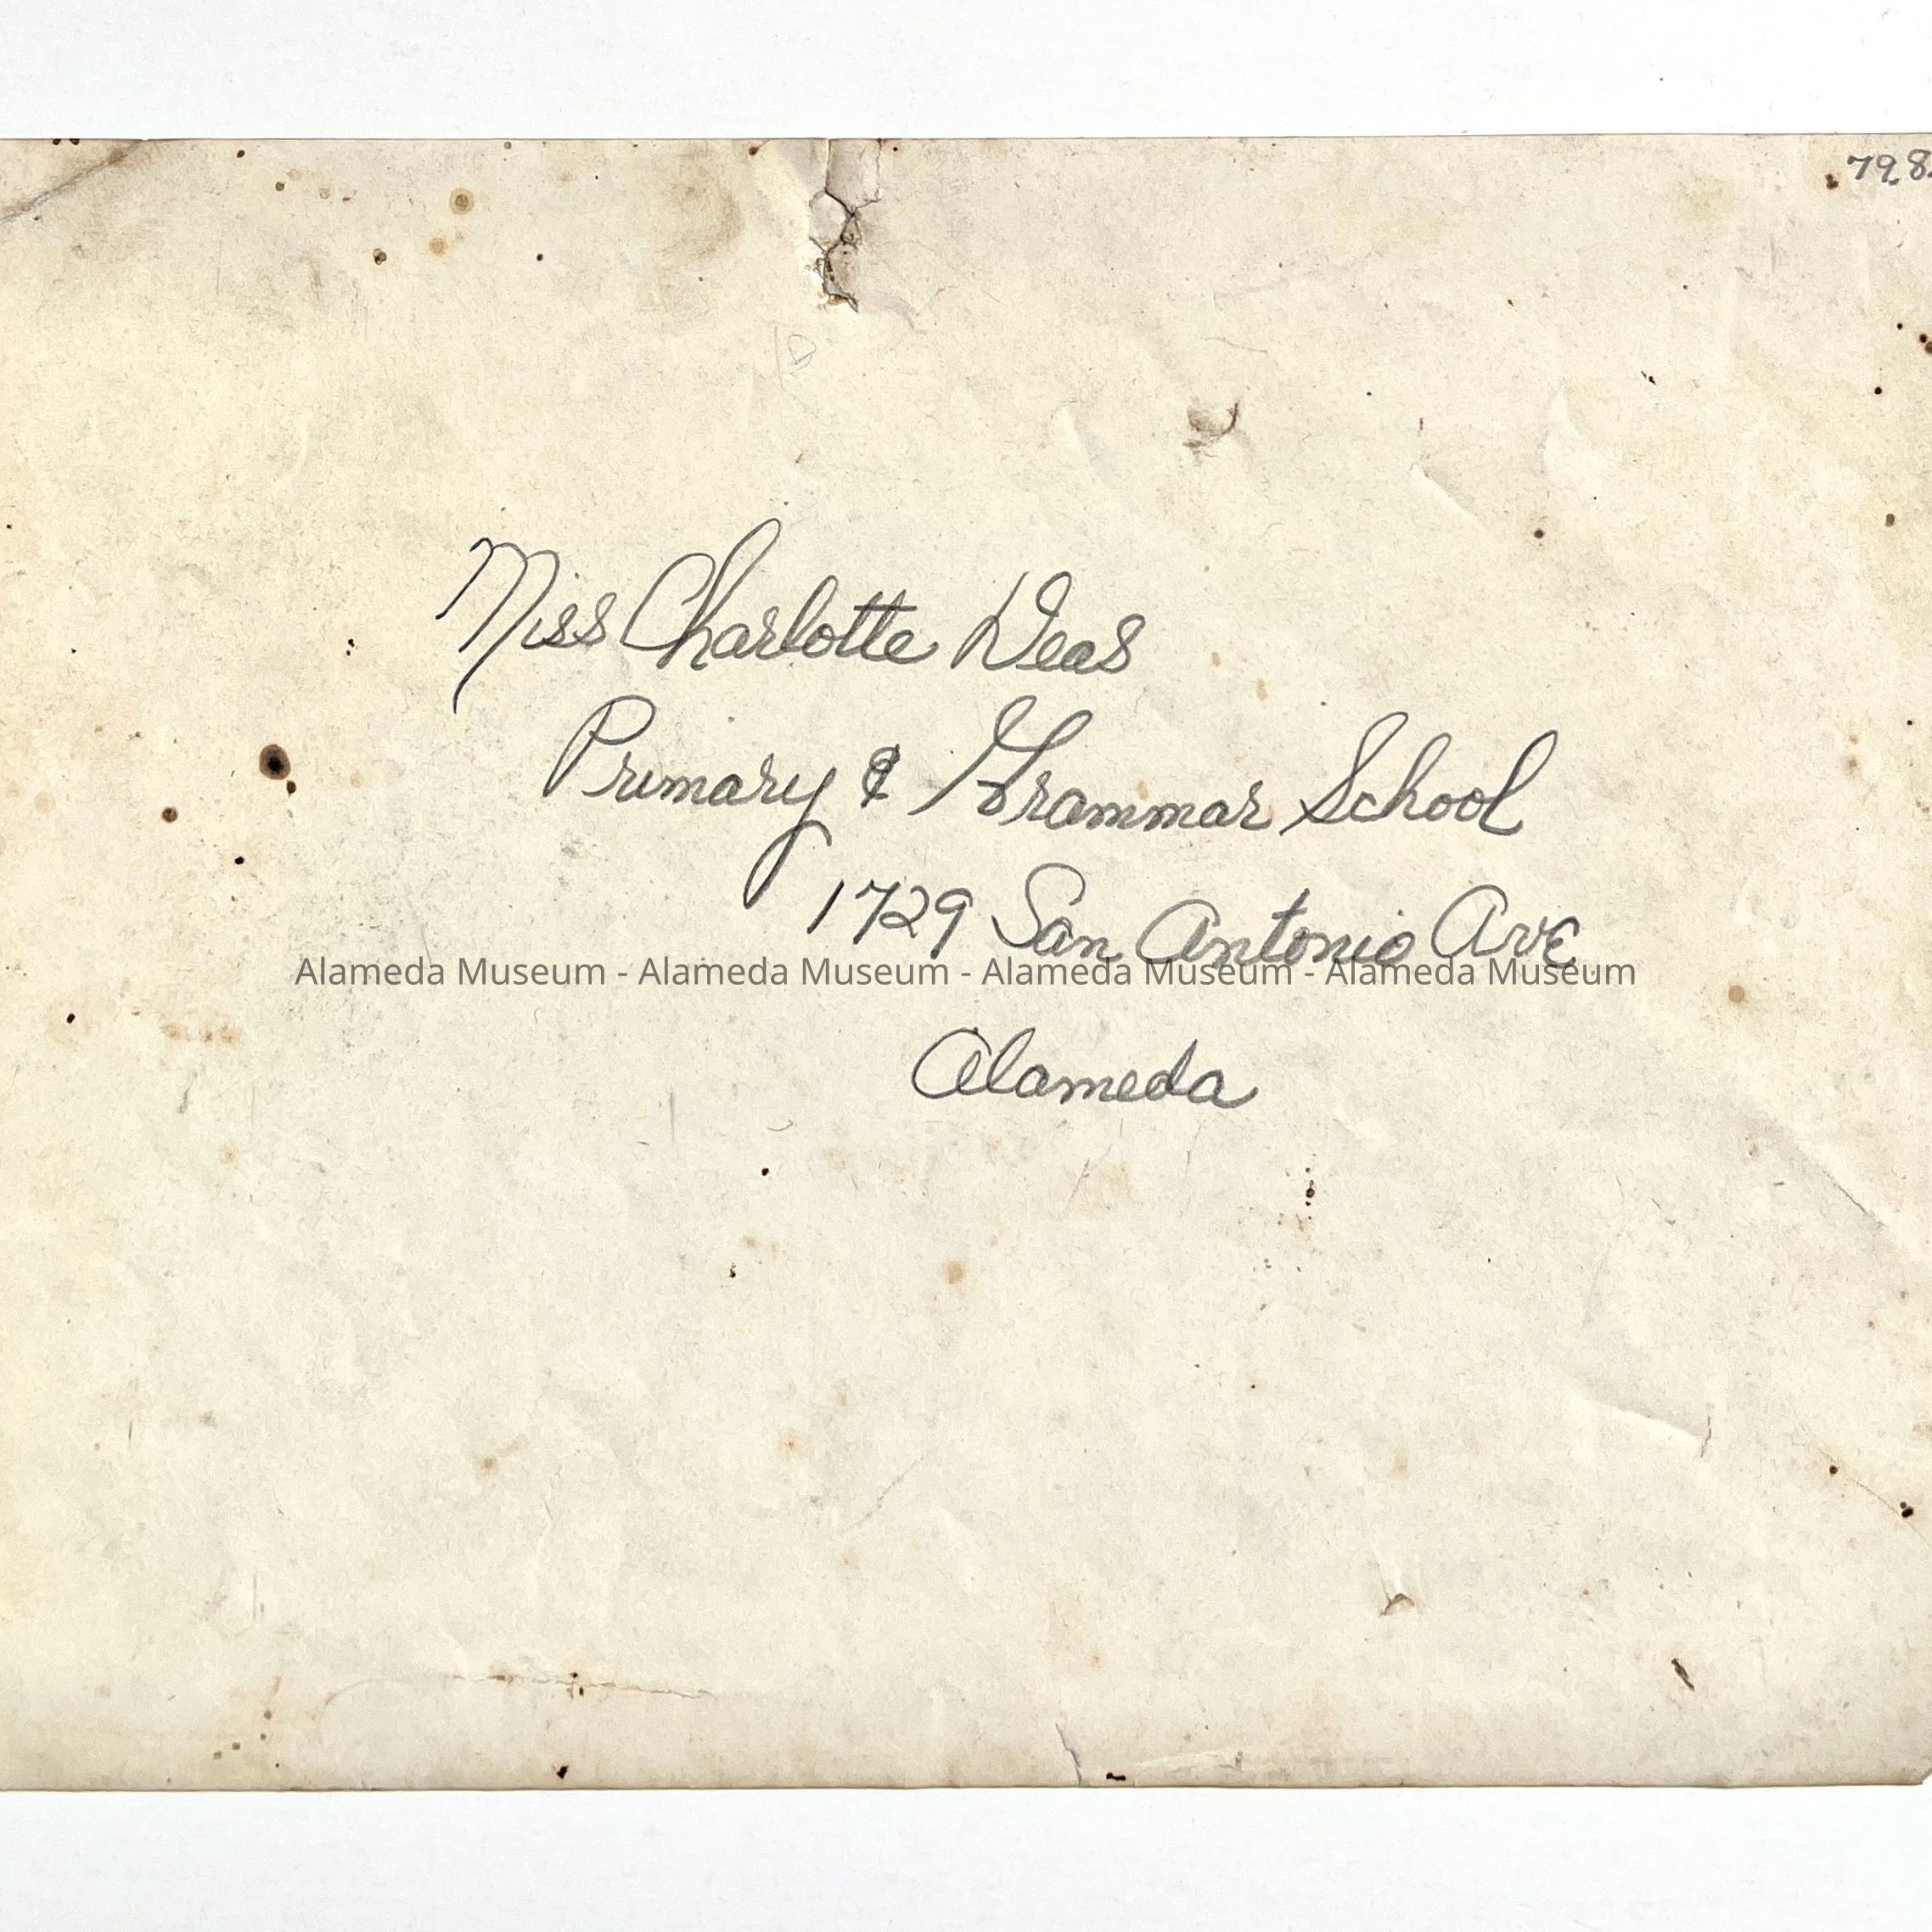 798.
Miss Charlotte Deas
Primary & Grammar School
1729 San Antonio Ave
Alameda Museum - Alameda Museum - Alameda Museum - Alameda Museum
Alameda